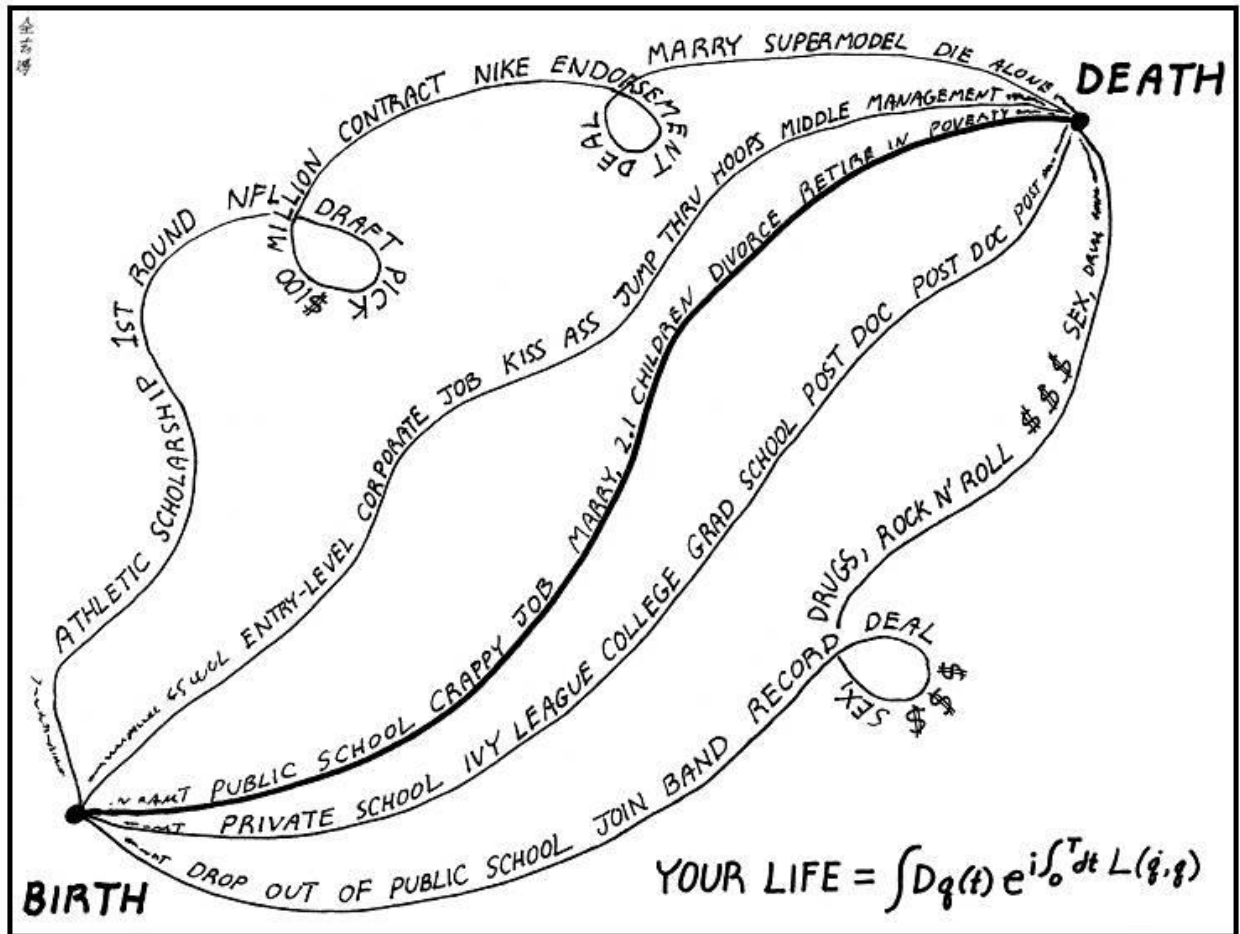 DEATH
MARRY SUPERMODEL DIE ALONE
ATHLETIC SCHOLARSHIP 1ST ROUND NFL DRAFT PICK $100 MILLION CONTRACT NIKE ENDORSEMENT DEAL
ENTRY-LEVEL CORPORATE JOB KISS ASS JUMP THRU HOOPS MIDDLE MANAGEMENT
PUBLIC SCHOOL CRAPPY JOB MARRY, 2.1 CHILDREN DIVORCE RETIRE IN POVERTY
PRIVATE SCHOOL IVY LEAGUE COLLEGE GRAD SCHOOL POST DOC POST DOC POST
DROP OUT OF PUBLIC SCHOOL JOIN BAND RECORD DEAL $ $ $ SEX, DRUGS, ROCK N' ROLL $ $ $ SEX,
BIRTH
YOUR LIFE = ∫Dq(t) e^{i∫₀ᵀdt L(q̇,q)}